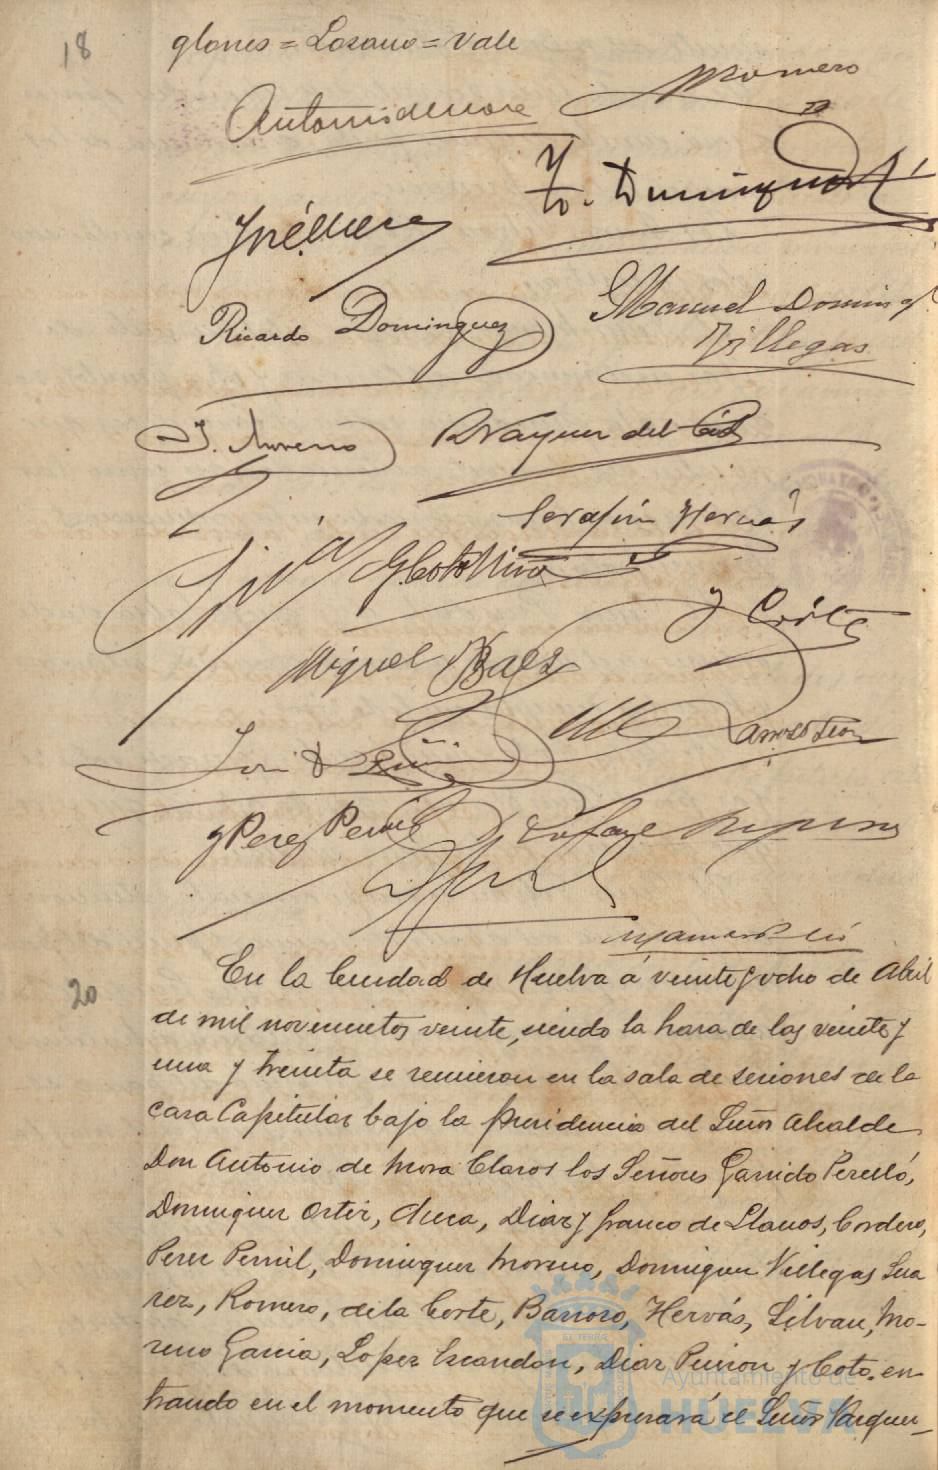 18
glones = Lozano = Vale
Antonio de Mora
Romero
José Mesa
Fo. Dominguez
Ricardo Dominguez
Manuel Doming
Villegas
J. Moreno
Vazquez del Cid
Serafin Hervás
G Coto
Miguel Baez
J Corte
Barroso Leon
J Perez Pernil
20
En la Ciudad de Huelva á veinte y ocho de Abril
de mil novecientos veinte, siendo la hora de las veinte y
una y treinta se reunieron en la sala de sesiones de la
casa Capitular bajo la presidencia del Señor Alcalde
Don Antonio de Mora Claros los Señores Garrido Perelló,
Dominguez Ortiz, Diaz y franco de Llanos, Cordero,
Perez Pernil, Dominguez Moreno, Dominguez Villegas Sua
rez, Romero, de la Corte, Barroso, Hervás, Silvan, Mo-
reno Garcia, Lopez Escandon, Diaz y Coto. en
trando en el momento que se expresará el Señor Vazquez
Ayuntamiento de
HUELVA